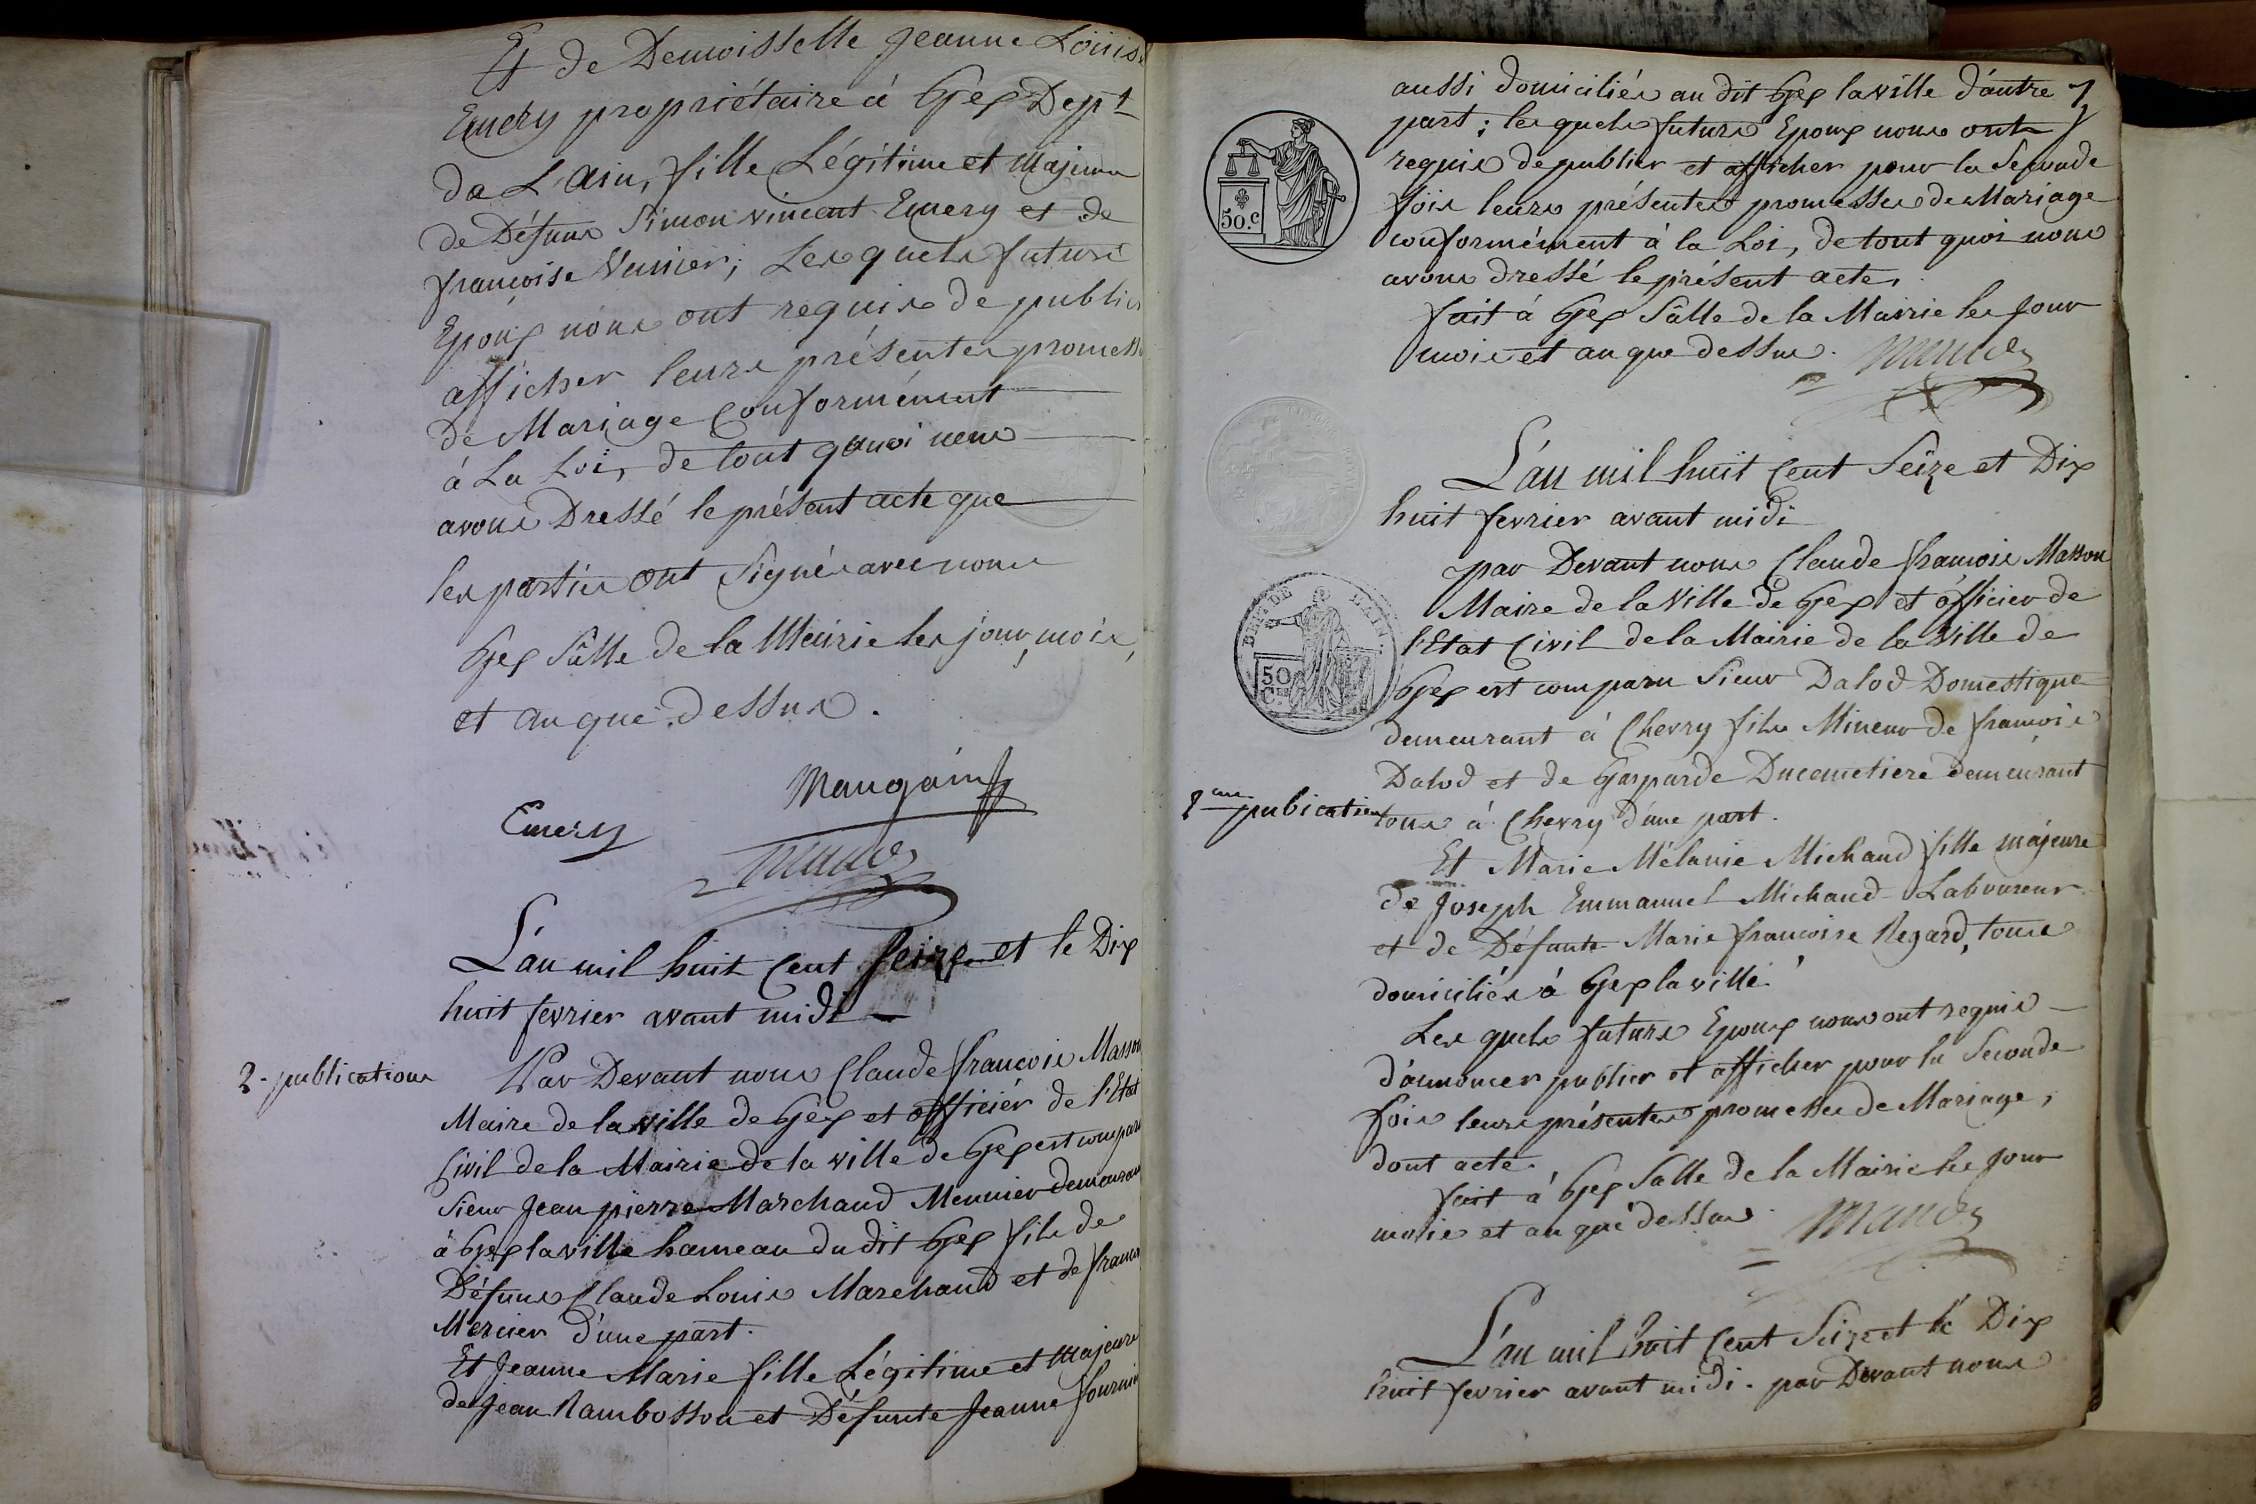 Et de Demoisselle Jeanne Löuise
Emery propriétaire à Gex Dept
de L'Ain, fille Légitime et Majeure
de Défunt Simon vincent Emery et de
françoise Vuinier; Lesquels futurs
Epoux nous ont requis de publier
afficher leurs présentes promesses
de Mariage Conformément
à La Loi, de tout quoi nous
avons Dressé le présent acte que
les parties ont Signées avec nous
Gex Sâlle de la Mairie les jour, mois,
et an que dessus.
Maugain
Emery
L'an mil huit Cent Seize et le Dix
huit fevrier avant midi
2. publications
Par Devant nous Claude françois Masson
Maire de la ville de Gex et officier de l'Etat
Civil de la Mairie de la ville de Gex est comparu
Sieur Jean pierre Marchand Meunier demeurant
à Gex la ville hameau du dit Gex fils de
Défunt Claude Louis Marchand et de
Mercier d'une part.
Et Jeanne Marie fille Légitime et Majeure
de Jean Rambosson et Défunte Jeanne
aussi domiciliés au dit Gex la ville d'autre 7
part; les quels futurs Epoux nous ont
requis de publier et afficher pour la Seconde
fois leurs présentes promesses de Mariage
conformément à la Loi, de tout quoi nous
avons dressé le présent acte.
fait à Gex Sâlle de la Mairie les Jour
mois et an que dessus.
50.c
L'an mil huit Cent Seize et Dix
huit fevrier avant midi
par Devant nous Claude françois Masson
Maire de la Ville de Gex et officier de
l'Etat Civil de la Mairie de la Ville de
Gex est comparu Sieur Dalod Domestique
demeurant à Chevry fils Mineur de françois
Dalod et de Gasparde Ducemetiere demeurant
tous à Chevry d'une part.
DEPT DE L'AIN.
50
Cmes
2eme pubication
Et Marie Mélanie Michaud fille majeure
de Joseph Emmanuel Michaud Laboureur
et de Défunte Marie françoise Regard, tous
domiciliés à Gex la ville.
Les quels futurs Epoux nous ont requis
d'annoncer publier et afficher pour la Seconde
fois leurs présentes promesses de Mariage,
dont acte.
fait à Gex Salle de la Mairie les Jour
mois et an que dessus.
L'an mil huit Cent Seize et le Dix
huit fevrier avant midi. par Devant nous